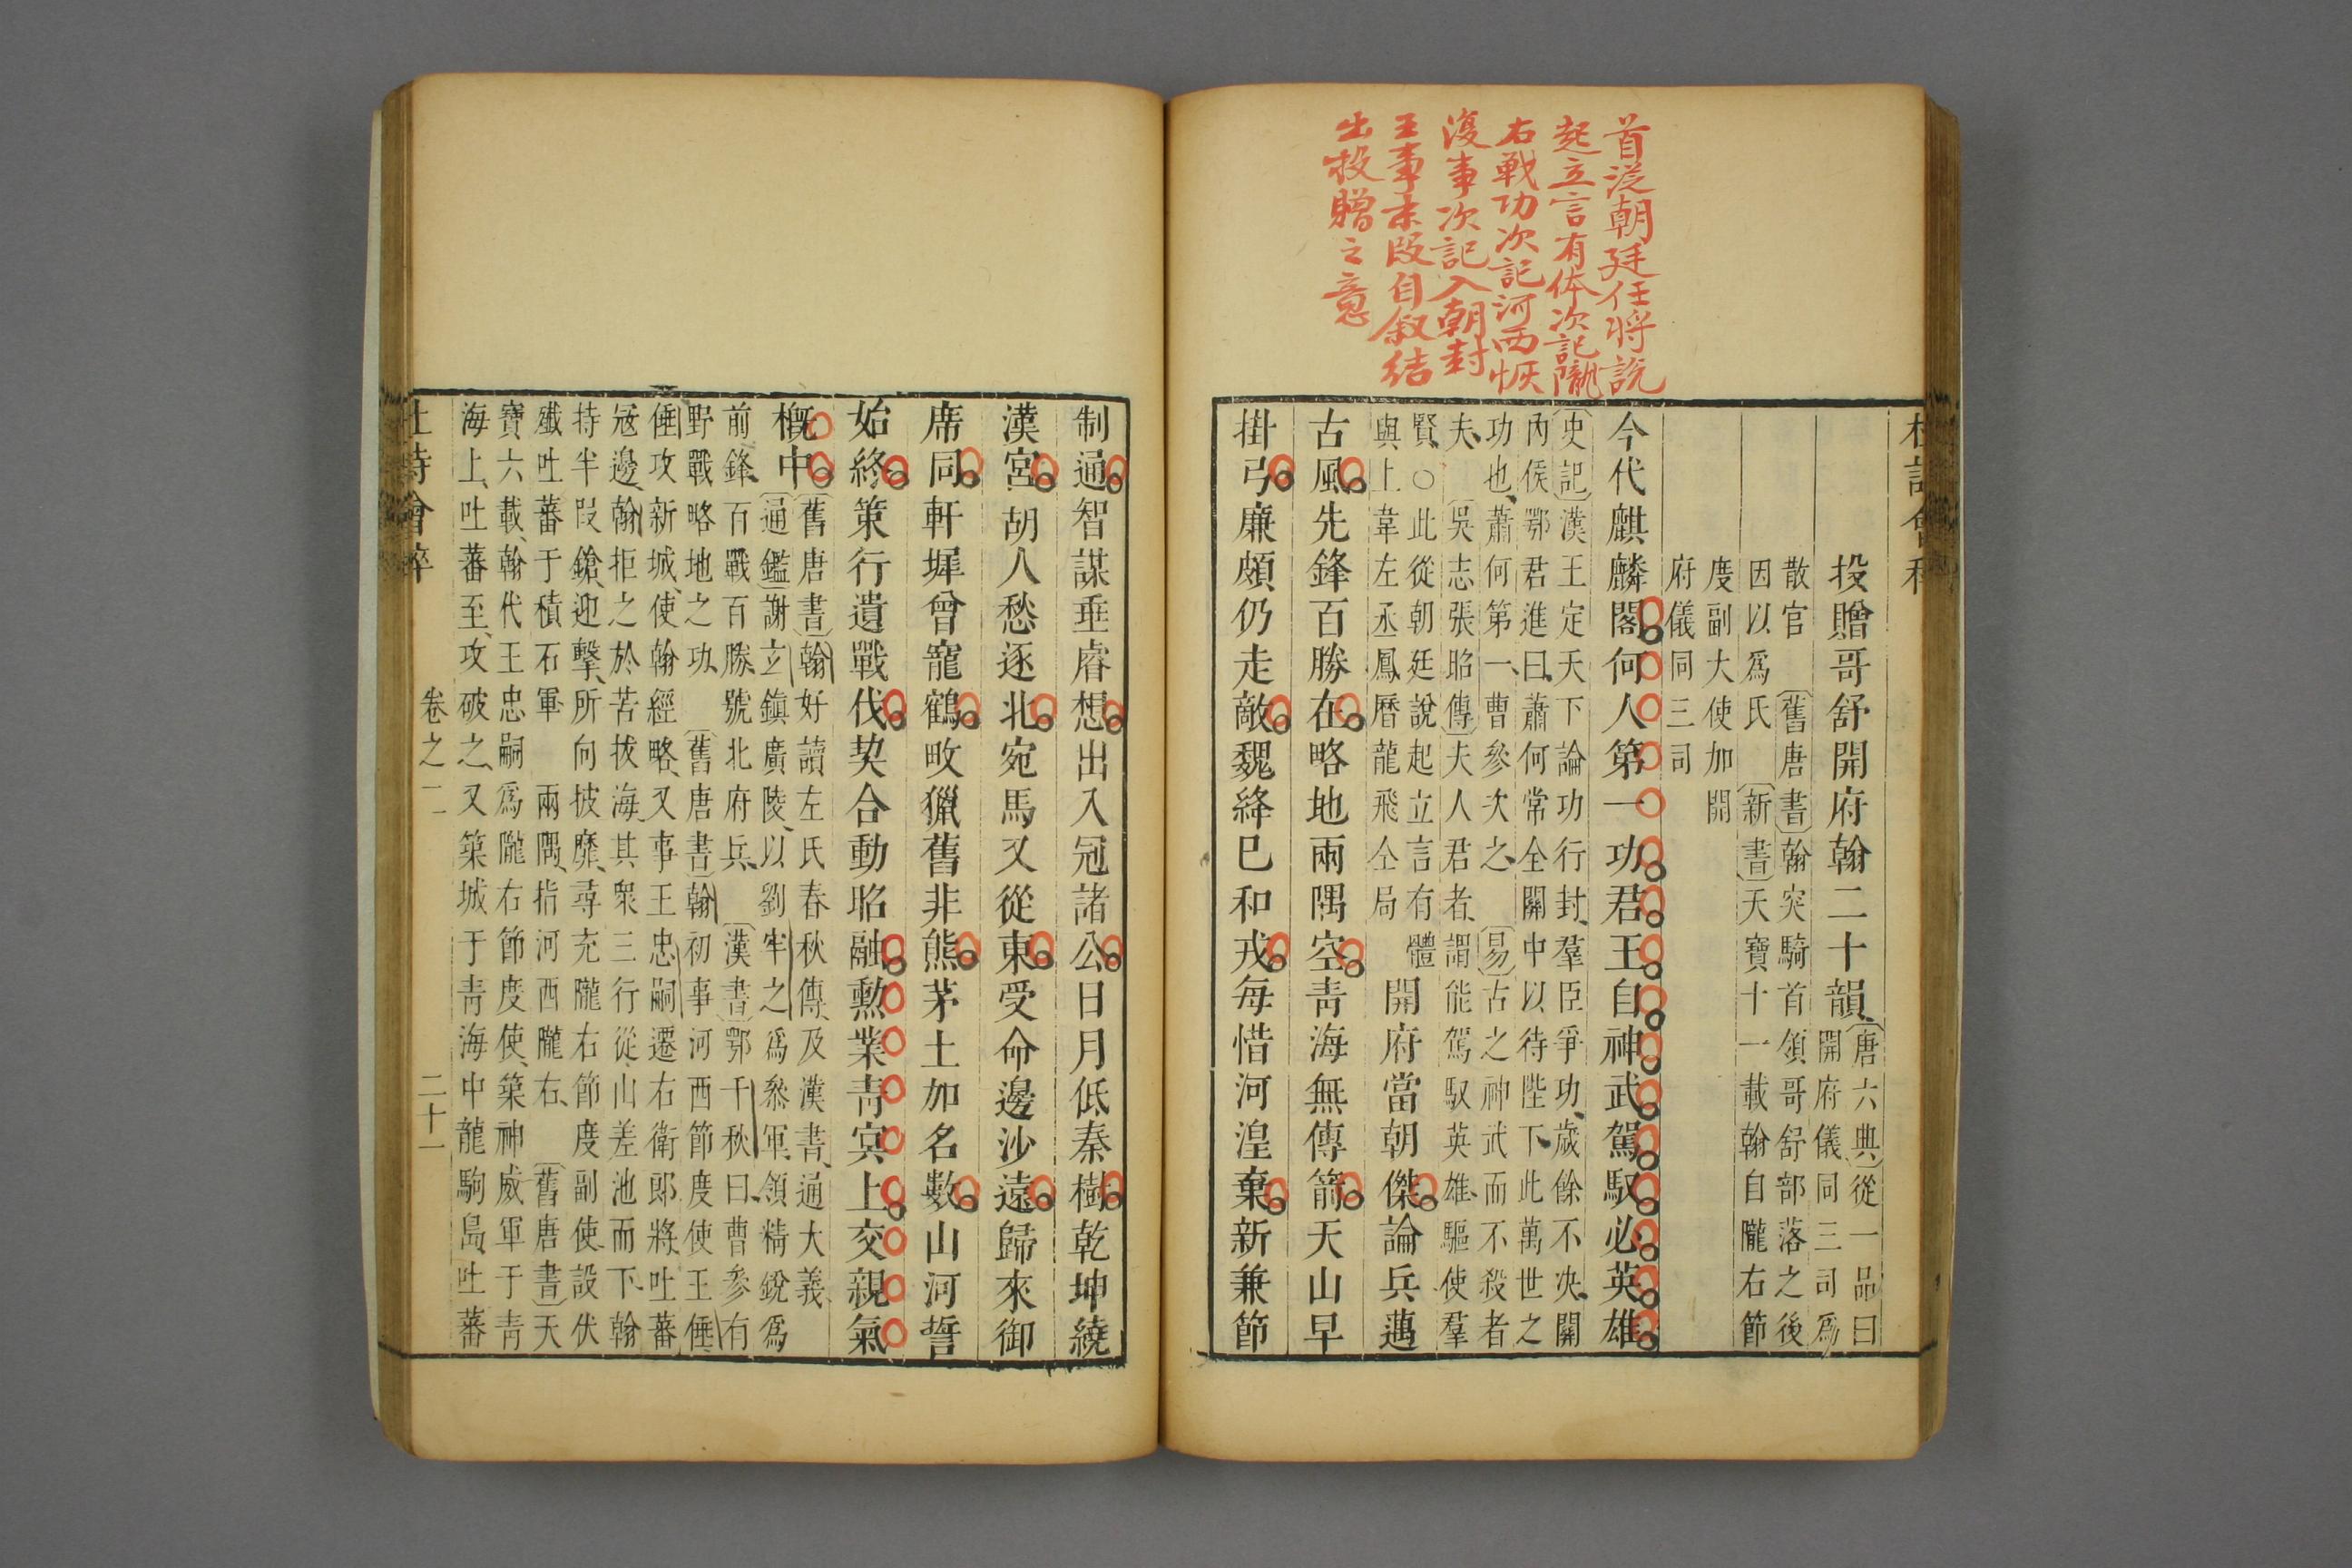 首從朝廷任将說
起立言有体次記隴
右戰功次記河西恢
復事次記入朝封
王事末段自叙結
出投贈之意
杜詩會稡
投贈哥舒開府翰二十韻〔唐六典〕從一品曰
開府儀同三司爲
散官 〔舊唐書〕翰突騎首領哥舒部落之後
因以爲氏 〔新書〕天寶十一載翰自隴右節
度副大使加開
府儀同三司
今代麒麟閣何人第一功君王自神武駕馭必英雄
〔史記〕漢王定天下論功行封、羣臣爭功、歲餘不决、關
內侯鄂君進曰、蕭何常全關中以待陛下、此萬世之
功也、蕭何第一、曹參次之、 〔易〕古之神武而不殺者
夫、 〔吳志張昭傳〕夫人君者、謂能駕馭英雄、驅使羣
賢、○此從朝廷說起立言有體
與上韋左丞鳳曆龍飛仝局
開府當朝傑論兵邁
古風先鋒百勝在略地兩隅空青海無傳箭天山早
掛弓廉頗仍走敵魏絳已和戎每惜河湟棄新兼節
制通智謀垂睿想出入冠諸公日月低秦樹乾坤繞
漢宮胡人愁逐北宛馬又從東受命邊沙遠歸來御
席同軒墀曾寵鶴畋獵舊非熊茅土加名數山河誓
始終策行遺戰伐契合動昭融勲業青冥上交親氣
槪中
〔舊唐書〕翰好讀左氏春秋傳、及漢書、通大義、
〔通鑑〕謝立鎮廣陵、以劉牢之爲叅軍、領精銳爲
前鋒、百戰百勝、號北府兵、 〔漢書〕鄂千秋曰、曹參有
野戰略地之功、 〔舊唐書〕翰初事河西節度使王倕、
倕攻新城、使翰經略、又事王忠嗣遷右衛郎將、吐蕃
冦邊、翰拒之於苦拔海、其衆三行從山差池而下、翰
持半段鎗、迎擊、所向披靡、尋充隴右節度副使、設伏
殲吐蕃于積石軍 兩隅、指河西隴右、 〔舊唐書〕天
寶六載、翰代王忠嗣爲隴右節度使、築神威軍于青
海上、吐蕃至、攻破之、又築城于青海中龍駒島、吐蕃
杜詩會稡 卷之二 二十一